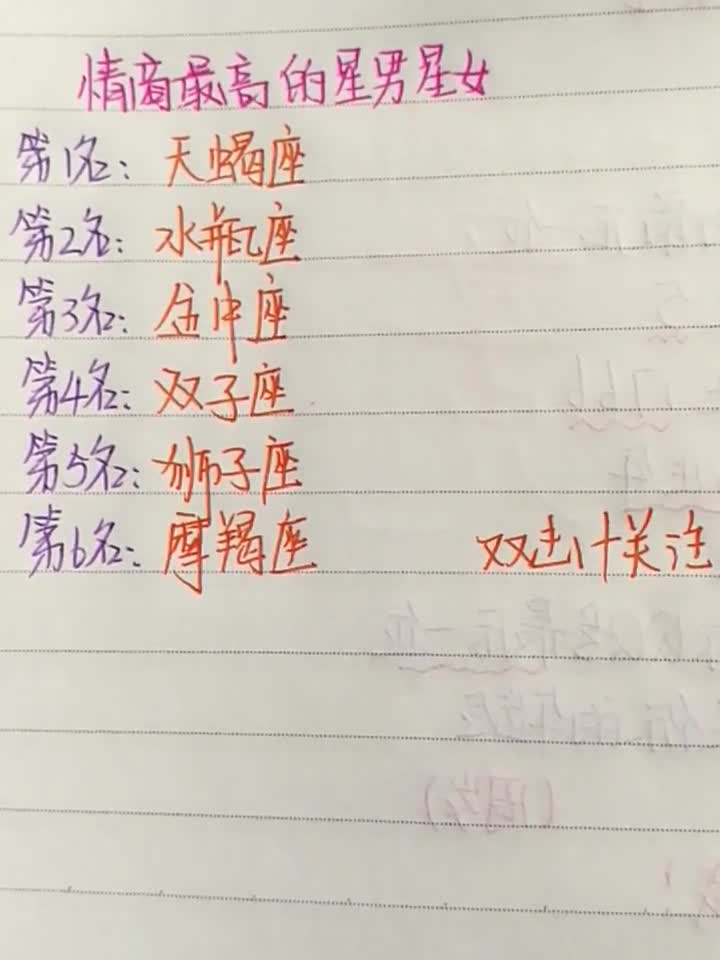 情商最高的星男星女
第1名：天蝎座
第2名：水瓶座
第3名：金牛座
第4名：双子座
第5名：狮子座
第6名：摩羯座
双击十关注